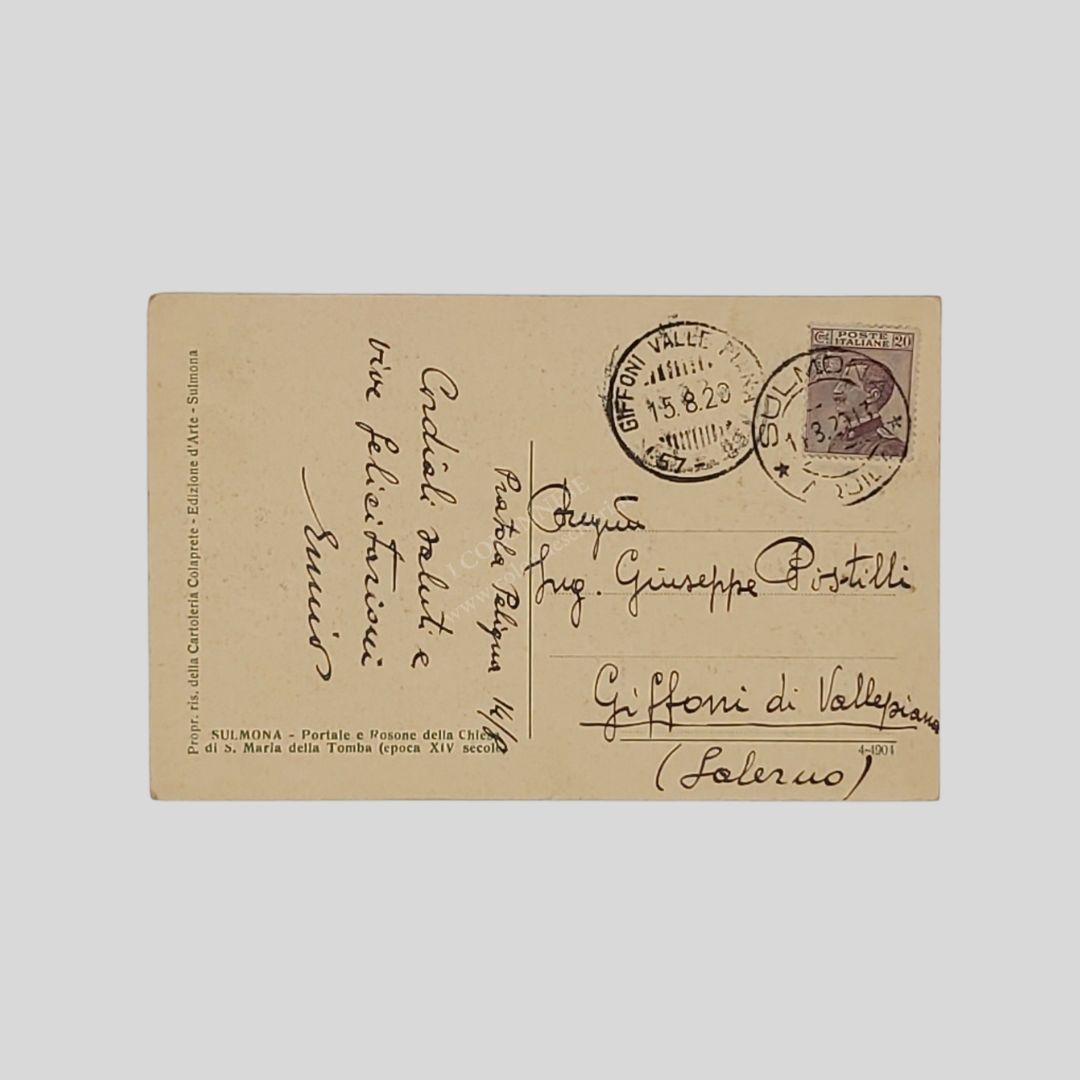 Propr. ris. della Cartoleria Colaprete - Edizione d'Arte - Sulmona
SULMONA - Portale e Rosone della Chiesa
di S. Maria della Tomba (epoca XIV secolo)
Pratola Peligna 14/8
Cordiali saluti e
vive felicitazioni
Ennio
GIFFONI VALLE PIANA
15.8.20
57
SULMONA
POSTE
ITALIANE
Ct. 20
Ing. Giuseppe Postilli
Giffoni di Vallepiana
(Salerno)
4-4904